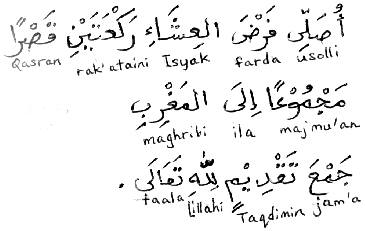 أُصَلِّى فَرْضَ العِشَاءِ رَكْعَتَيْنِ قَصْرًا
Qasran rak'ataini Isyak farda usolli
مَجْمُوْعًا إِلَى المَغْرِبِ
maghribi ila majmu'an
جَمْعَ تَقْدِيْمٍ لِلّٰهِ تَعَالَى.
taala lillahi Taqdimin jam'a